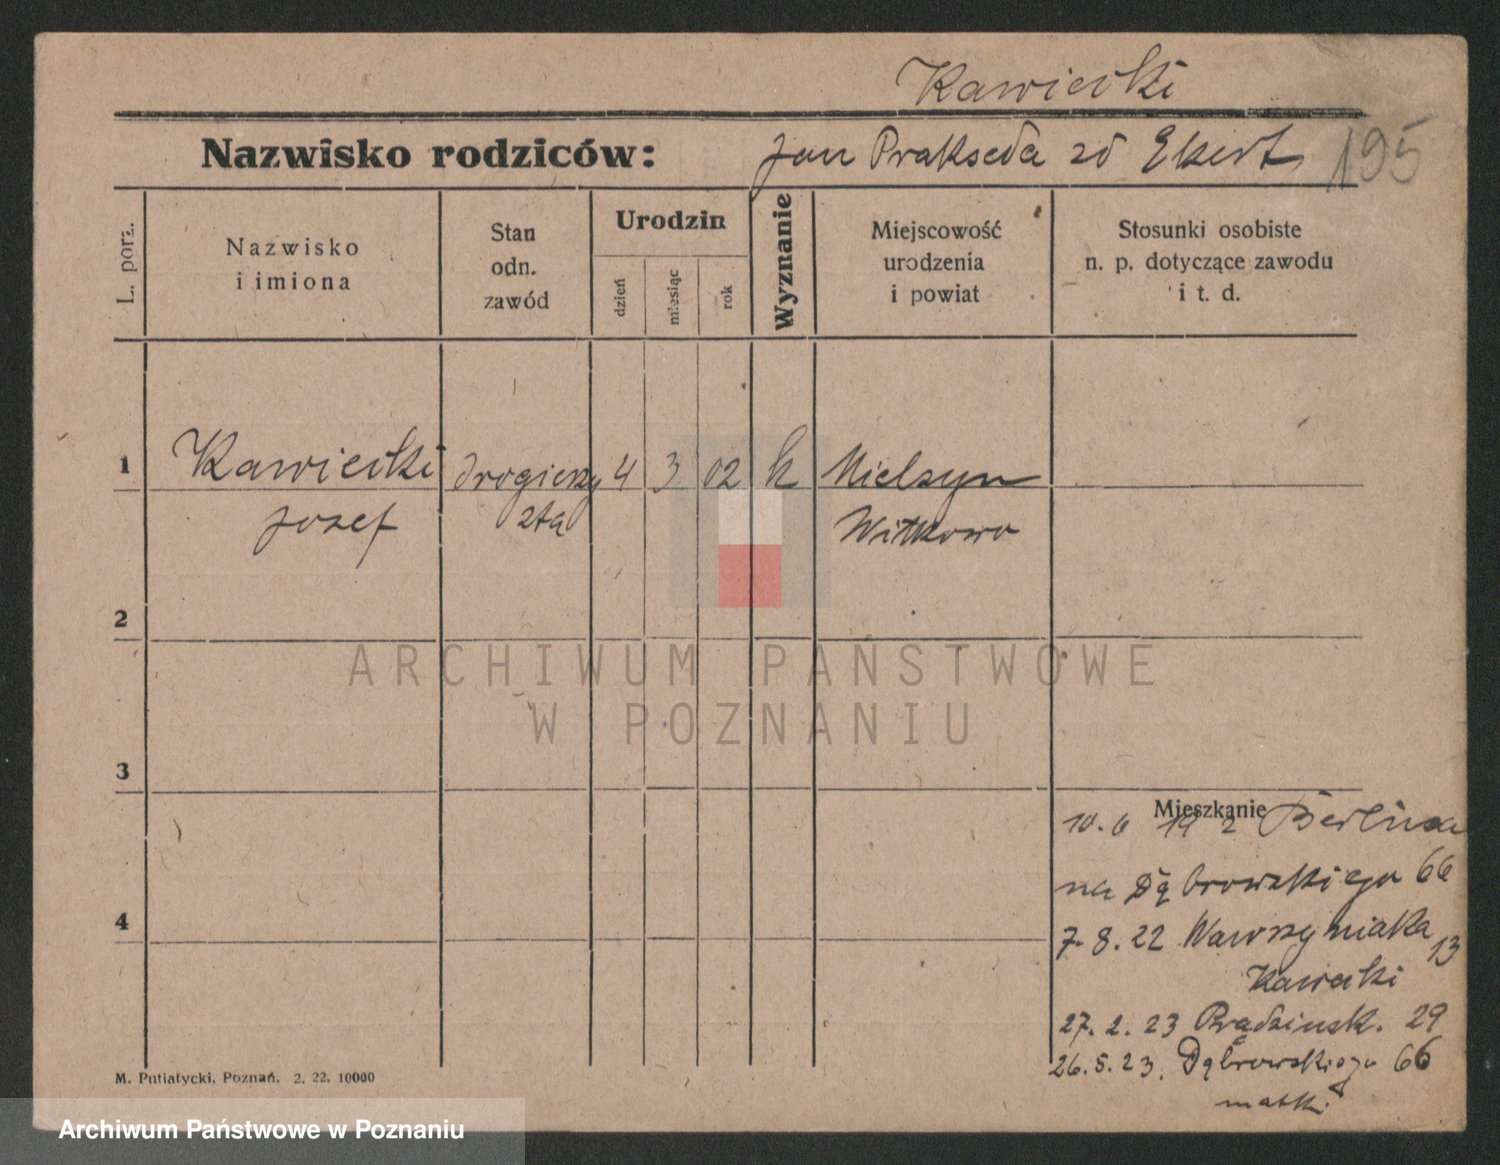 Kawiecki
Nazwisko rodziców: Jan Prakseda zd Ekert 195
L. porz.
Nazwisko
i imiona
Stan
odn.
zawód
Urodzin
dzień
miesiąc
rok
Wyznanie
Miejscowość
urodzenia
i powiat
Stosunki osobiste
n. p. dotyczące zawodu
i t. d.
1 Kawiecki drogierzy 4 3 02 k Mielzyn
Józef sta Witkowo
2
3
Mieszkanie
10. 6 19 2 Berlina
na Dąbrowskiego 66
4
7. 8. 22 Wawrzyniaka 13
Kawiecki
27. 2. 23 29
26. 5. 23. Dąbrowskiego 66
matki
M. Putiatycki, Poznań. 2. 22. 10000
ARCHIWUM PAŃSTWOWE
W POZNANIU
Archiwum Państwowe w Poznaniu